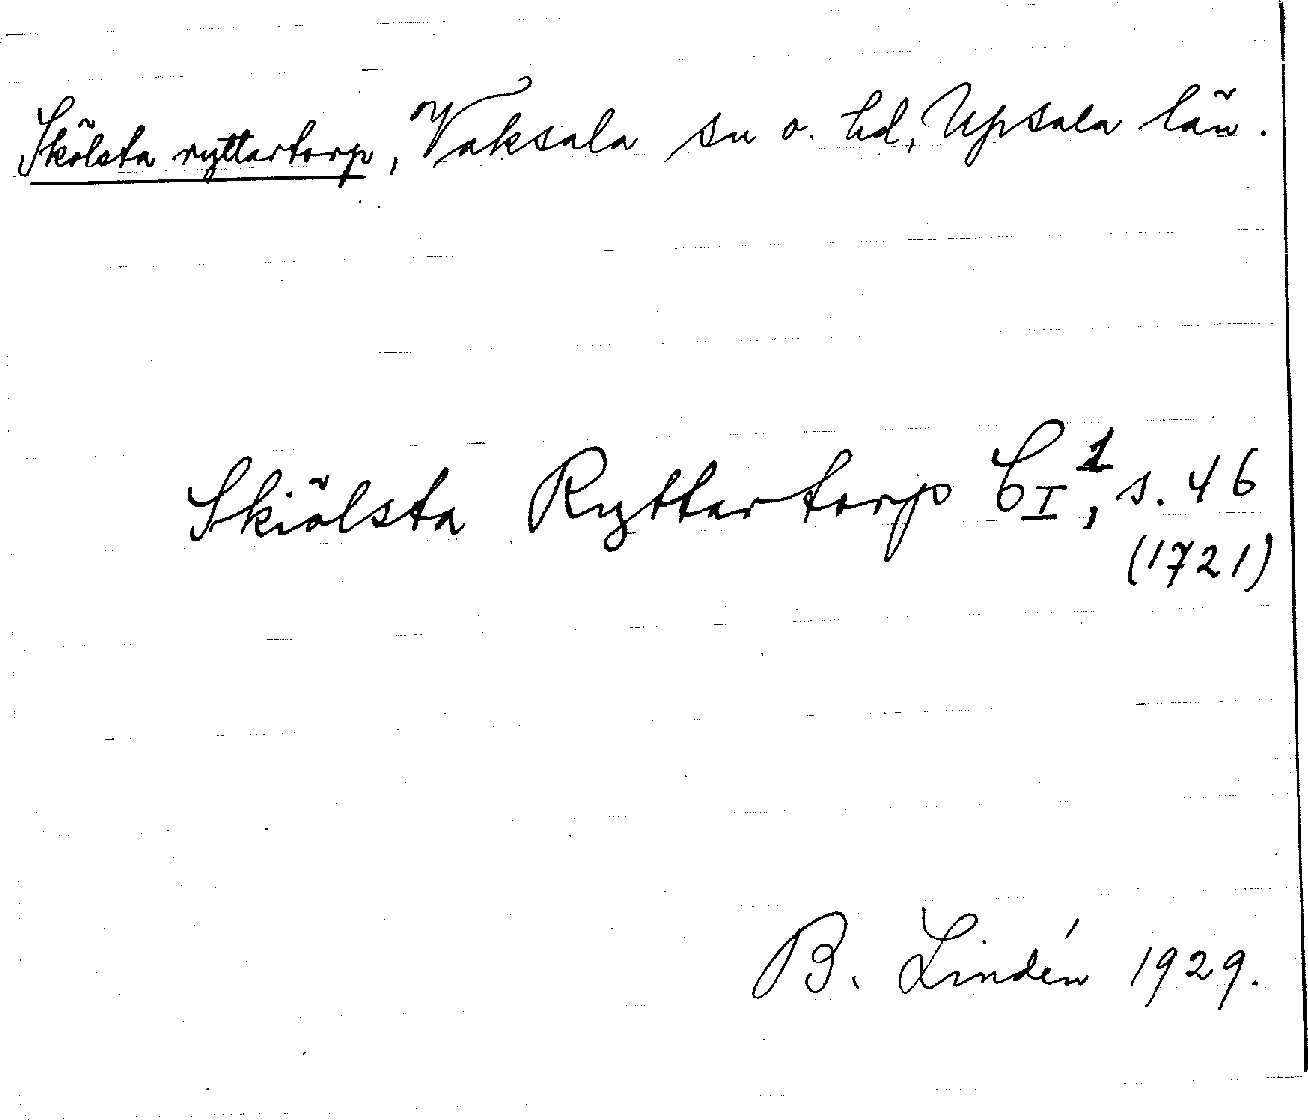 Skölsta ryttartorp, Vaksala sn o. hd, Upsala län.
Skiölsta Ryttartorp C I¹, s. 46
(1721)
B. Lindén 1929.